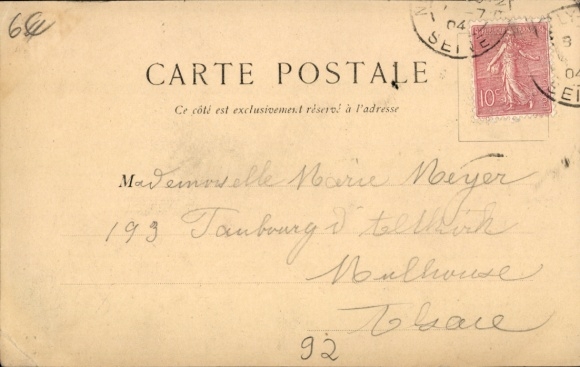 6
04
SEINE
04
SEI
CARTE POSTALE
10c
Ce côté est exclusivement réservé à l'adresse
Mademoiselle Marie Meyer
193 Faubourg d'Altkirch
Mulhouse
Alsace
92